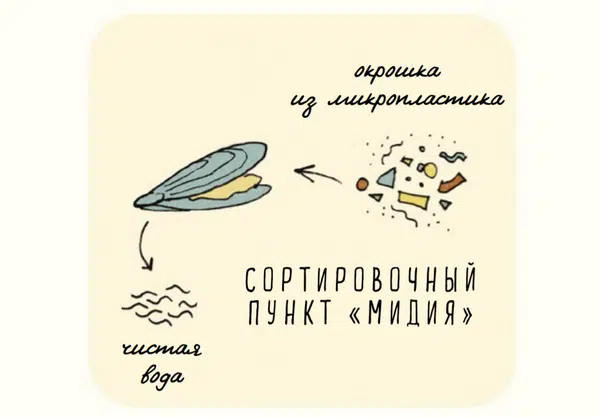 окрошка
из микропластика
СОРТИРОВОЧНЫЙ
ПУНКТ «МИДИЯ»
чистая
вода